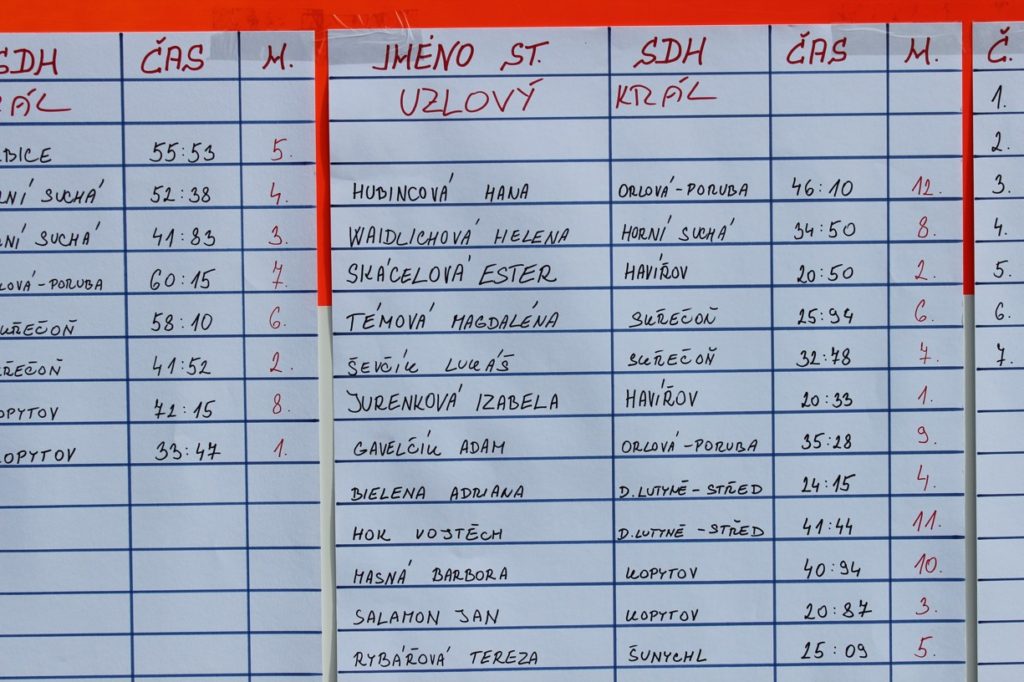 ČAS M.
55:53 5.
SUCHÁ 52:38 4.
SUCHÁ 41:83 3.
-PORUBA 60:15 7.
58:10 6.
41:52 2.
72:15 8.
33:47 1.
JMÉNO ST. SDH ČAS M.
UZLOVÝ KRÁL
HUBINCOVÁ HANA ORLOVÁ-PORUBA 46:10 12.
WAIDLICHOVÁ HELENA HORNÍ SUCHÁ 34:50 8.
SKÁCELOVÁ ESTER HAVÍŘOV 20:50 2.
TÉMOVÁ MAGDALÉNA SKŘEČOŇ 25:94 6.
ŠEVČÍK LUKÁŠ SKŘEČOŇ 32:78 7.
JURENKOVÁ IZABELA HAVÍŘOV 20:33 1.
GAVELČÍK ADAM ORLOVÁ-PORUBA 35:28 9.
BIELENA ADRIANA D.LUTYNĚ-STŘED 24:15 4.
HOK VOJTĚCH D.LUTYNĚ-STŘED 41:44 11.
MASNÁ BARBORA KOPYTOV 40:94 10.
SALAMON JAN KOPYTOV 20:87 3.
RYBÁŘOVÁ TEREZA ŠUNYCHL 25:09 5.
Č.
1.
2.
3.
4.
5.
6.
7.